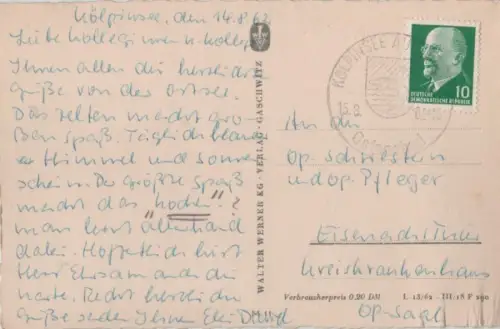 Kölpinsee, den 14.8.62
Liebe Kolleginnen u. Kolleg
Ihnen allen die herzlichsten
Grüße von der Ostsee.
Das Zelten macht gro-
ßen Spaß. Täglich blau-
er Himmel und Sonnen-
schein. Der größte Spaß
macht das "kochen"?
man lernt allerhand
dabei. Hoffentlich hört
Herr auch die
Karte. Recht herzliche
Grüße sendet Ihnen
WALTER WERNER KG · VERLAG · GASCHWITZ
KÖLPINSEE AUF
15.8.
Ostseebad
DEUTSCHE
DEMOKRATISCHE REPUBLIK
10
An die
Op.-Schwestern
und Op. Pfleger
Eisenach/Thür
Kreiskrankenhaus
Op-Saal
Verbraucherpreis 0.20 DM
III/18 F